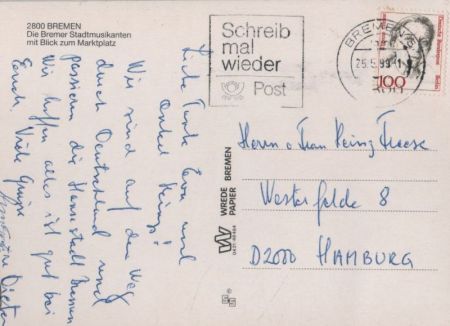 2800 BREMEN
Die Bremer Stadtmusikanten
mit Blick zum Marktplatz
Liebe Tante Eva und
Onkel Heinz!
Wir sind auf dem Weg
durch Deutschland und
passieren die Hansestadt Bremen
Wir hoffen alles ist gut bei
Euch. Viele Grüße
Dieter
Schreib
mal
wieder
Post
BREMEN
Deutsche Bundespost
Berlin
100
WREDE BREMEN
PAPIER
Herrn u Frau Heinz Haase
Westerfelde 8
D2000 HAMBURG